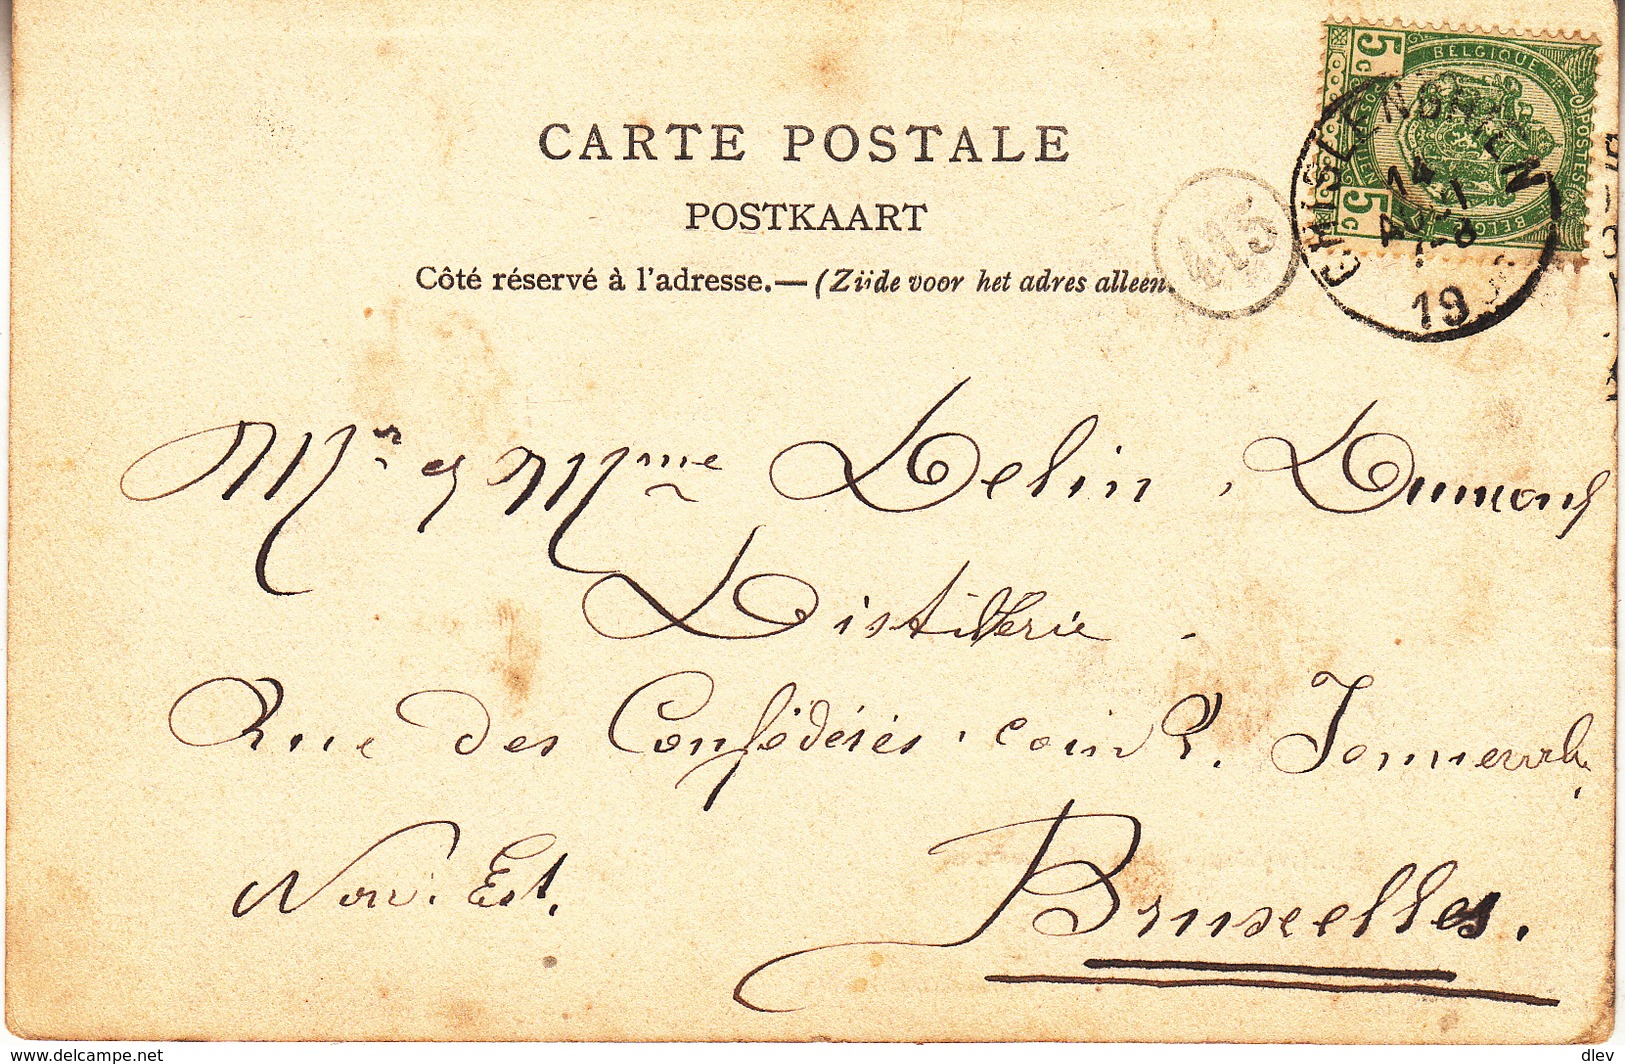 CARTE POSTALE
POSTKAART
Côté réservé à l'adresse.— (Zijde voor het adres alleen
5 c BELGIQUE POSTES 5 c
GHISLENGHIEN
14
7-8
19
415
Mr et Mme Delin, Dumont
Distillerie.
Rue des Confédérés. coin R.
Nov. Est.
Bruxelles.
www.delcampe.net
dlev